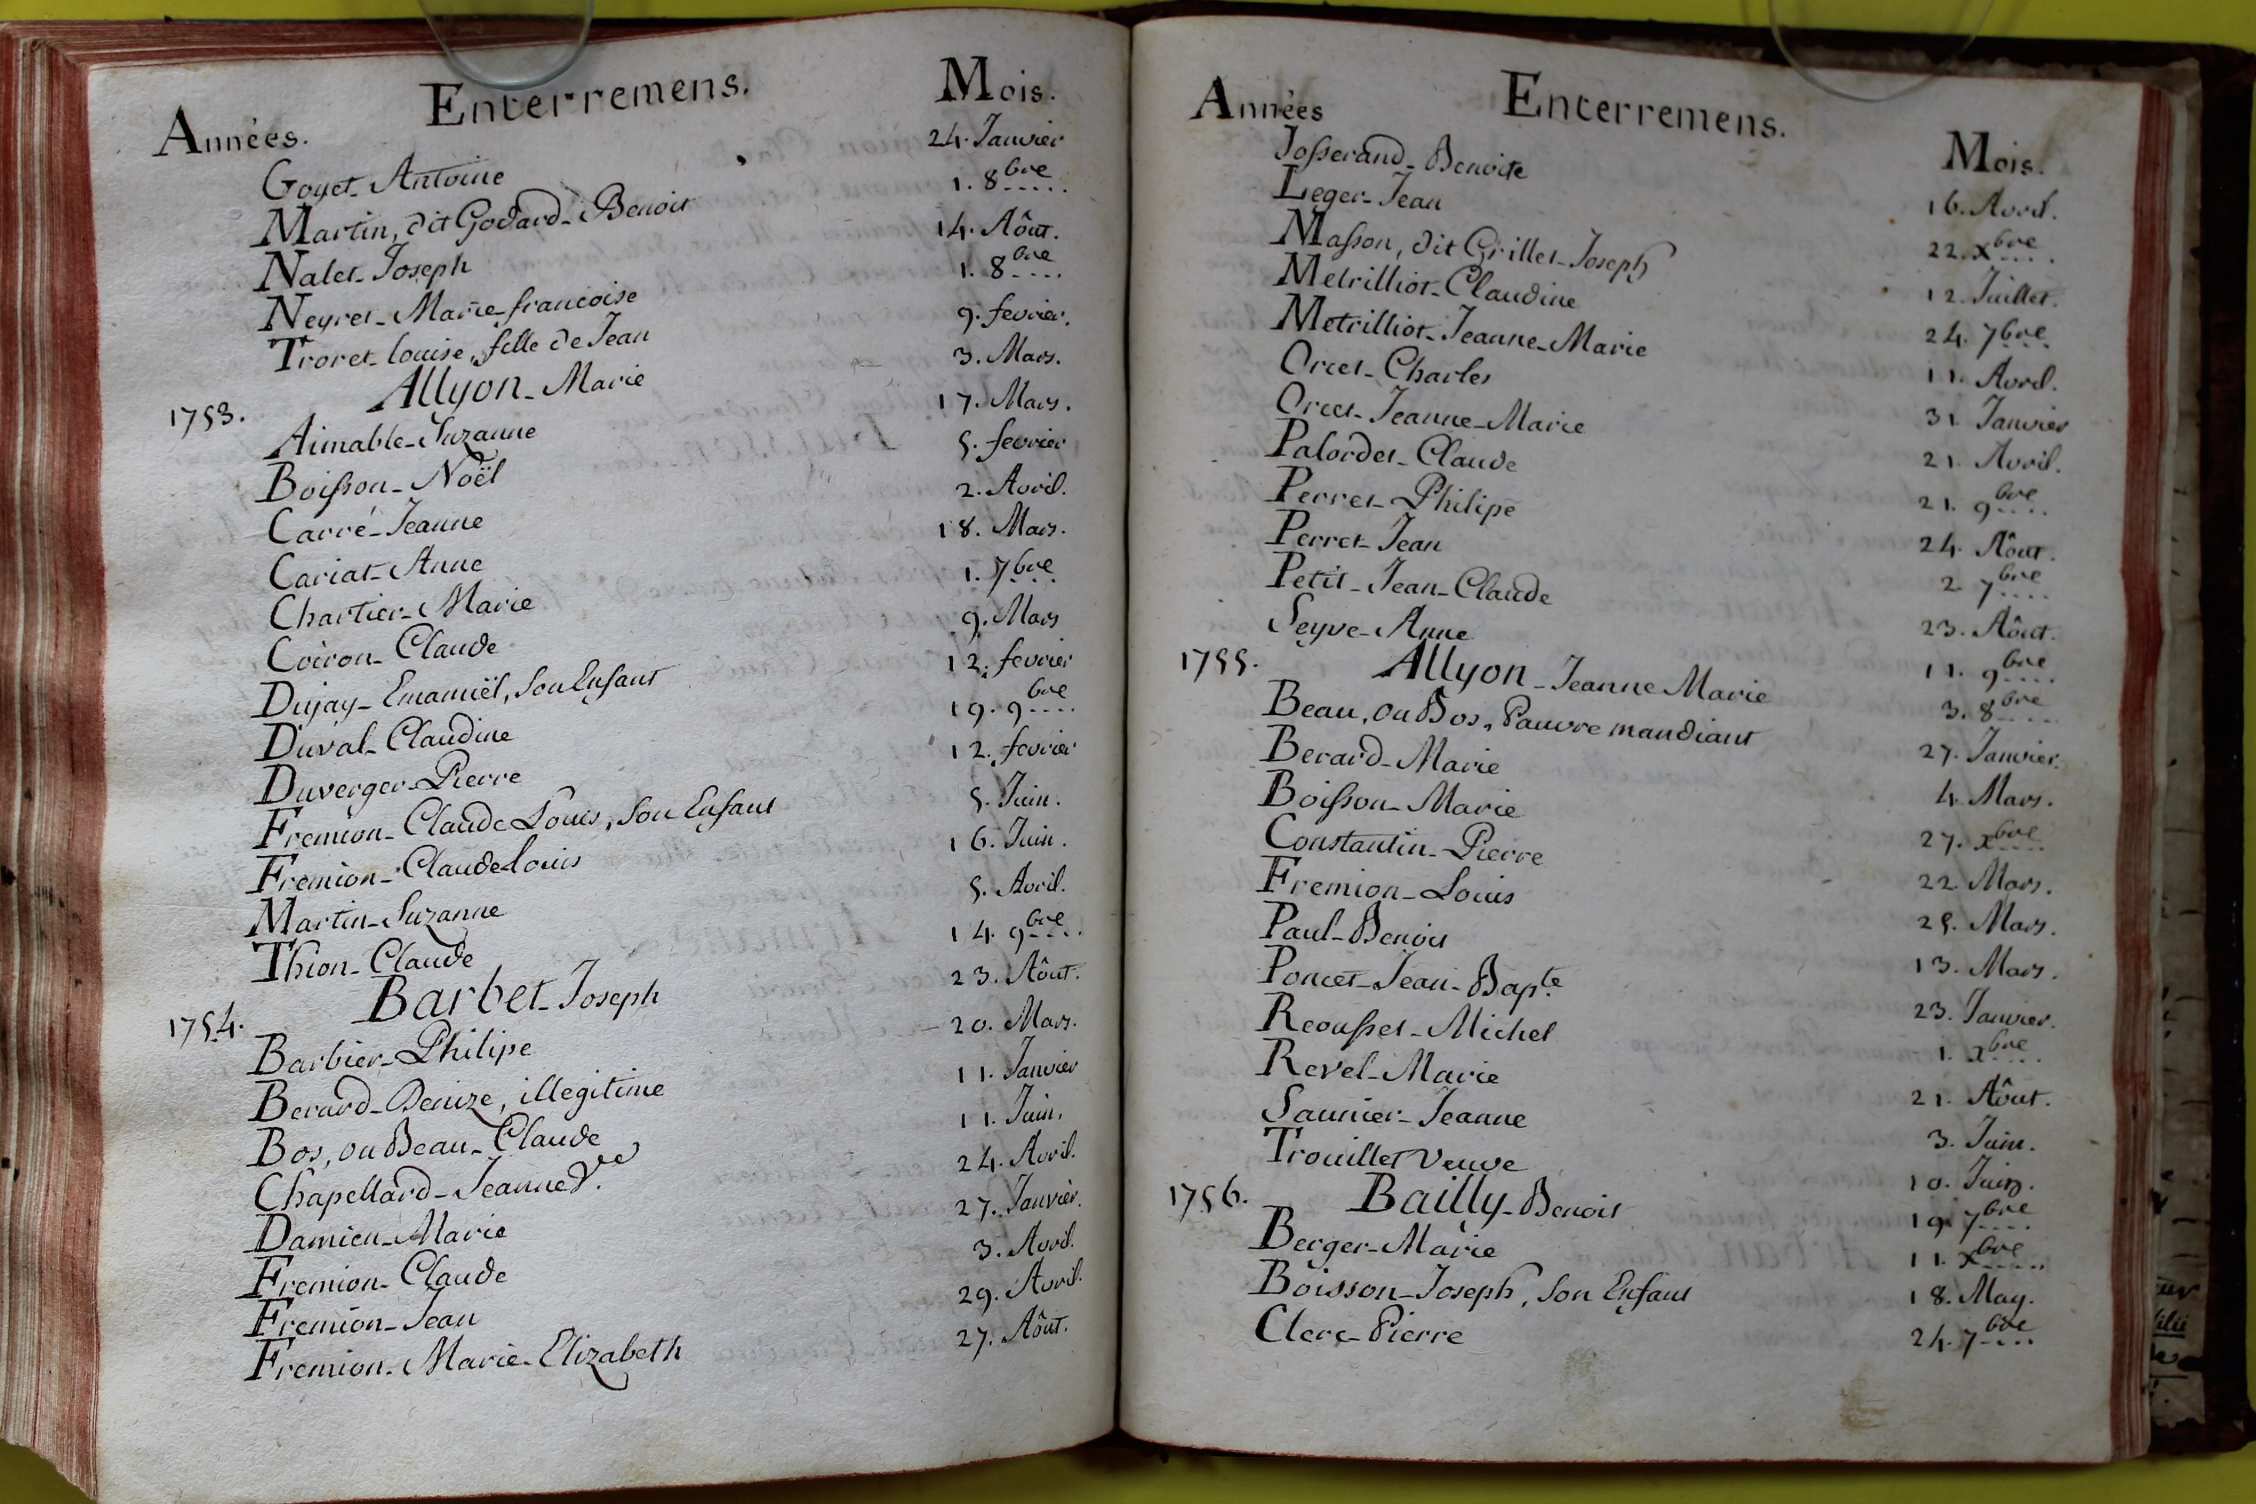 Années. Enterremens. Mois.
Goyet - Antoine 24. Janvier
Martin, dit Godard - Benoit 1. 8bre....
Nalet - Joseph 14. Aôut.
Neyret - Marie - francoise 1. 8bre....
Troret - louise, fille de Jean 9. fevrier.
1753. Allyon - Marie 3. Mars.
Aimable - Suzanne 17. Mars.
Boisson - Noël 5. fevrier
Carré - Jeanne 2. Avril.
Cariat - Anne 18. Mars.
Chartier - Marie 1. 7bre...
Coiron - Claude 9. Mars
Dujay - Emamiël, Son Enfant 12. fevrier
Duval - Claudine 19. 9bre....
Duverger - Pierre 12. fevrier
Fremion - Claude Louis, Son Enfant 5. Juin.
Fremion - Claude Louis 16. Juin.
Martin - Suzanne 5. Avril.
Thion - Claude 14. 9bre....
1754. Barbet - Joseph 23. Aôut.
Barbier - Philipe 20. Mars.
Berard - Denize, illegitime 11. Janvier
Bos, ou Beau - Claude 11. Juin.
Chapellard - Jeanne Ve. 24. Avril.
Damien - Marie 27. Janvier.
Fremion - Claude 3. Avril.
Fremion - Jean 29. Avril.
Fremion - Marie - Elizabeth 27. Aôut.
Années Enterremens. Mois.
Josserand - Benoite 16. Avril.
Leger - Jean 22. xbre....
Masson, dit Grillet - Joseph 12. Juillet.
Metrilliot - Claudine 24. 7bre...
Metrilliot - Jeanne - Marie 11. Avril.
Orcet - Charles 31. Janvier
Orcet - Jeanne - Marie 21. Avril.
Palordet - Claude 21. 9bre....
Perret - Philipe 24. Aôut.
Perret - Jean 2. 7bre....
Petit - Jean - Claude 23. Aôut.
Seyve - Anne 11. 9bre....
1755. Allyon - Jeanne Marie 3. 8bre....
Beau, ou Bos, Pauvre mandiant 27. Janvier.
Berard - Marie 4. Mars.
Boisson - Marie 27. xbre....
Constantin - Pierre 22. Mars.
Fremion - Louis 25. Mars.
Paul - Benoit 13. Mars.
Poncet - Jean - Bapte. 23. Janvier.
Reousset - Michel 1. xbre....
Revel - Marie 21. Aôut.
Saunier - Jeanne 3. Juin.
Trouillet Veuve 10. Juin.
1756. Bailly - Benoit 19. 7bre....
Berger - Marie 11. xbre.....
Boisson - Joseph, Son Enfant 18. May.
Clerc - Pierre 24. 7bre....